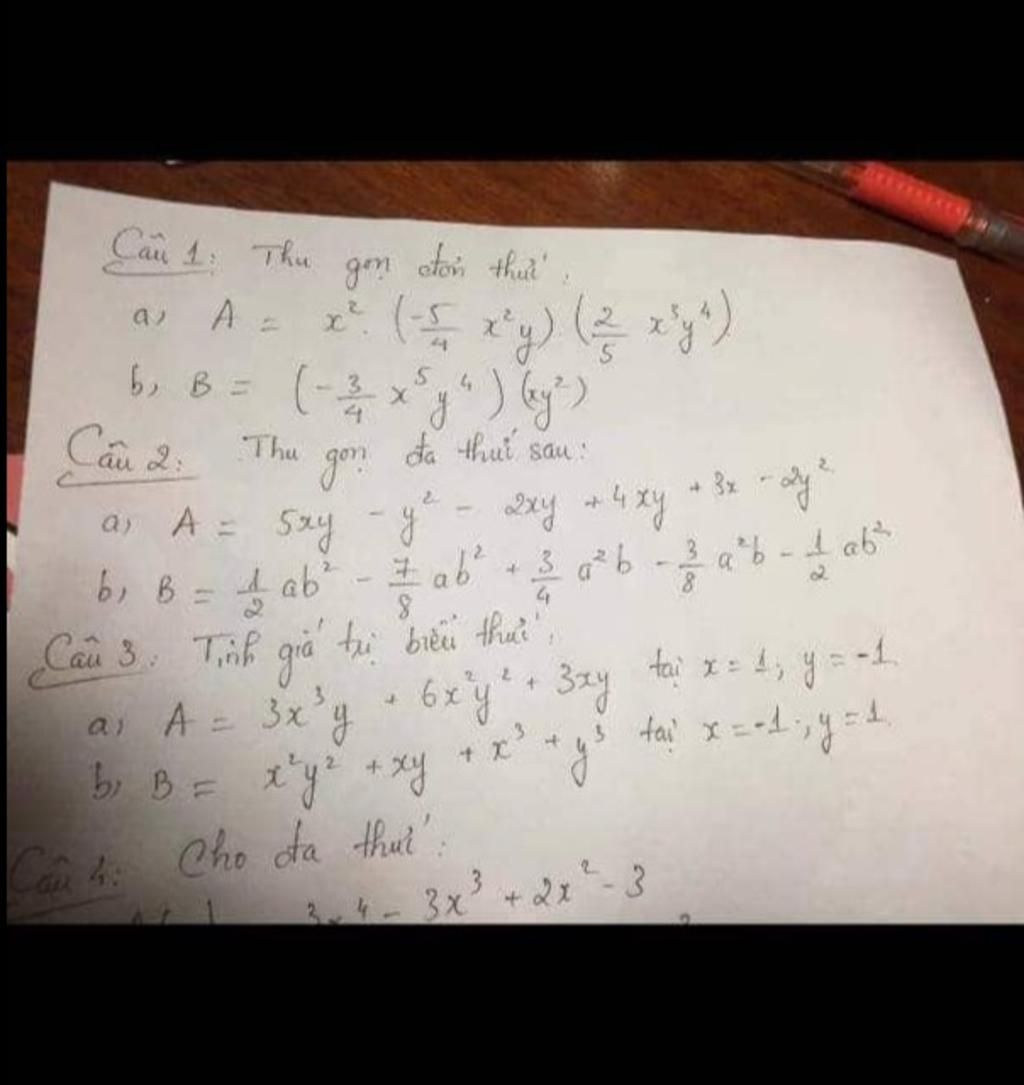 Câu 1: Thu gọn đơn thức:
a, A = x². (-5/4 x²y) (2/5 x³y⁴)
b, B = (-3/4 x⁵y⁴) (xy²)
Câu 2: Thu gọn đa thức sau:
a, A = 5xy - y² - 2xy + 4xy + 3x - 2y²
b, B = 1/2 ab² - 7/8 ab² + 3/4 a²b - 3/8 a²b - 1/2 ab²
Câu 3: Tính giá trị biểu thức:
a, A = 3x³y + 6x²y² + 3xy tại x = 1; y = -1.
b, B = x²y² + xy + x³ + y³ tại x = -1; y = 1.
Câu 4: Cho đa thức:
3x⁴ - 3x³ + 2x² - 3